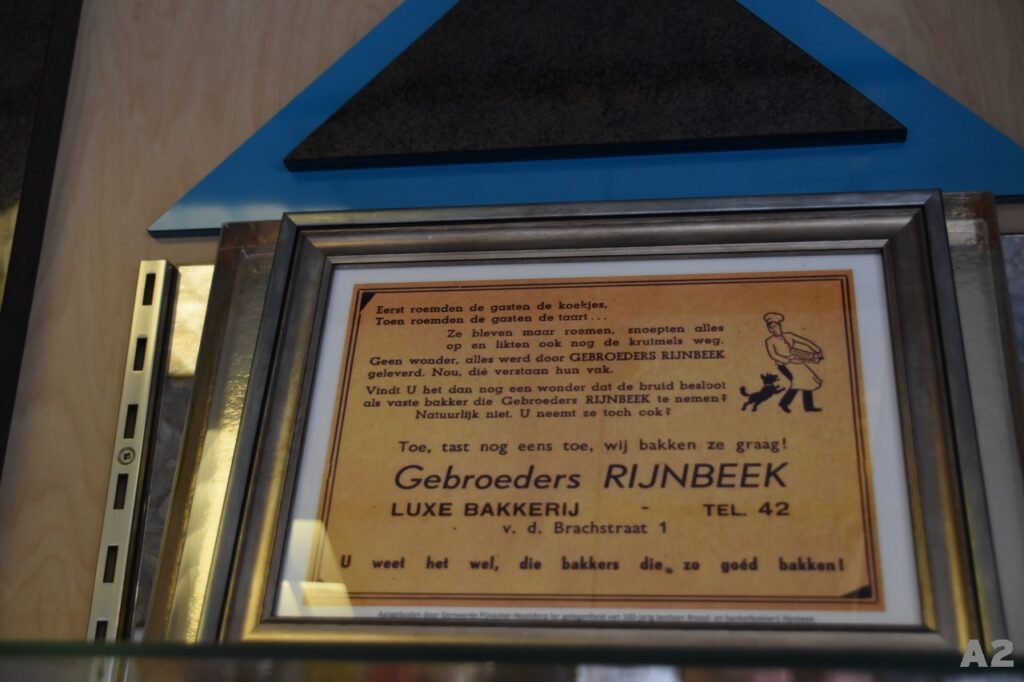 Eerst roemden de gasten de koekjes,
Toen roemden de gasten de taart...
Ze bleven maar roemen, snoepten alles
op en likten ook nog de kruimels weg.
Geen wonder, alles werd door GEBROEDERS RIJNBEEK
geleverd. Nou, dié verstaan hun vak.
Vindt U het dan nog een wonder dat de bruid besloot
als vaste bakker die Gebroeders RIJNBEEK te nemen?
Natuurlijk niet. U neemt ze toch ook?
Toe, tast nog eens toe, wij bakken ze graag!
Gebroeders RIJNBEEK
LUXE BAKKERIJ - TEL. 42
v. d. Brachstraat 1
U weet het wel, die bakkers die zo goéd bakken!
Aangeboden door Gemeente Pijnacker-Nootdorp ter gelegenheid van 100-jarig bestaan Brood- en Banketbakkerij Rijnbeek
A2